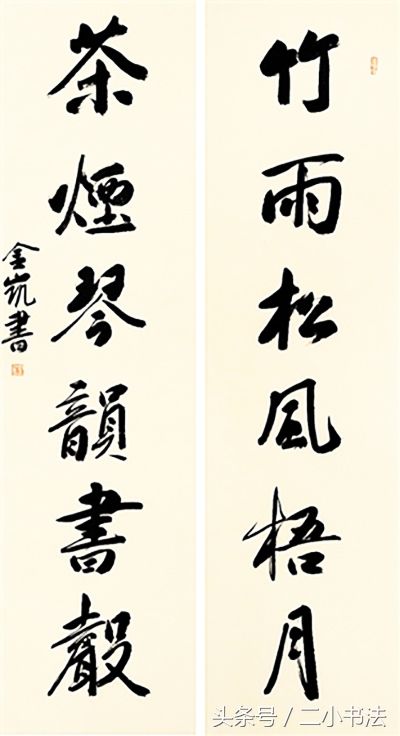 竹雨松風梧月
茶煙琴韻書聲
金凱書
头条号 / 二小书法